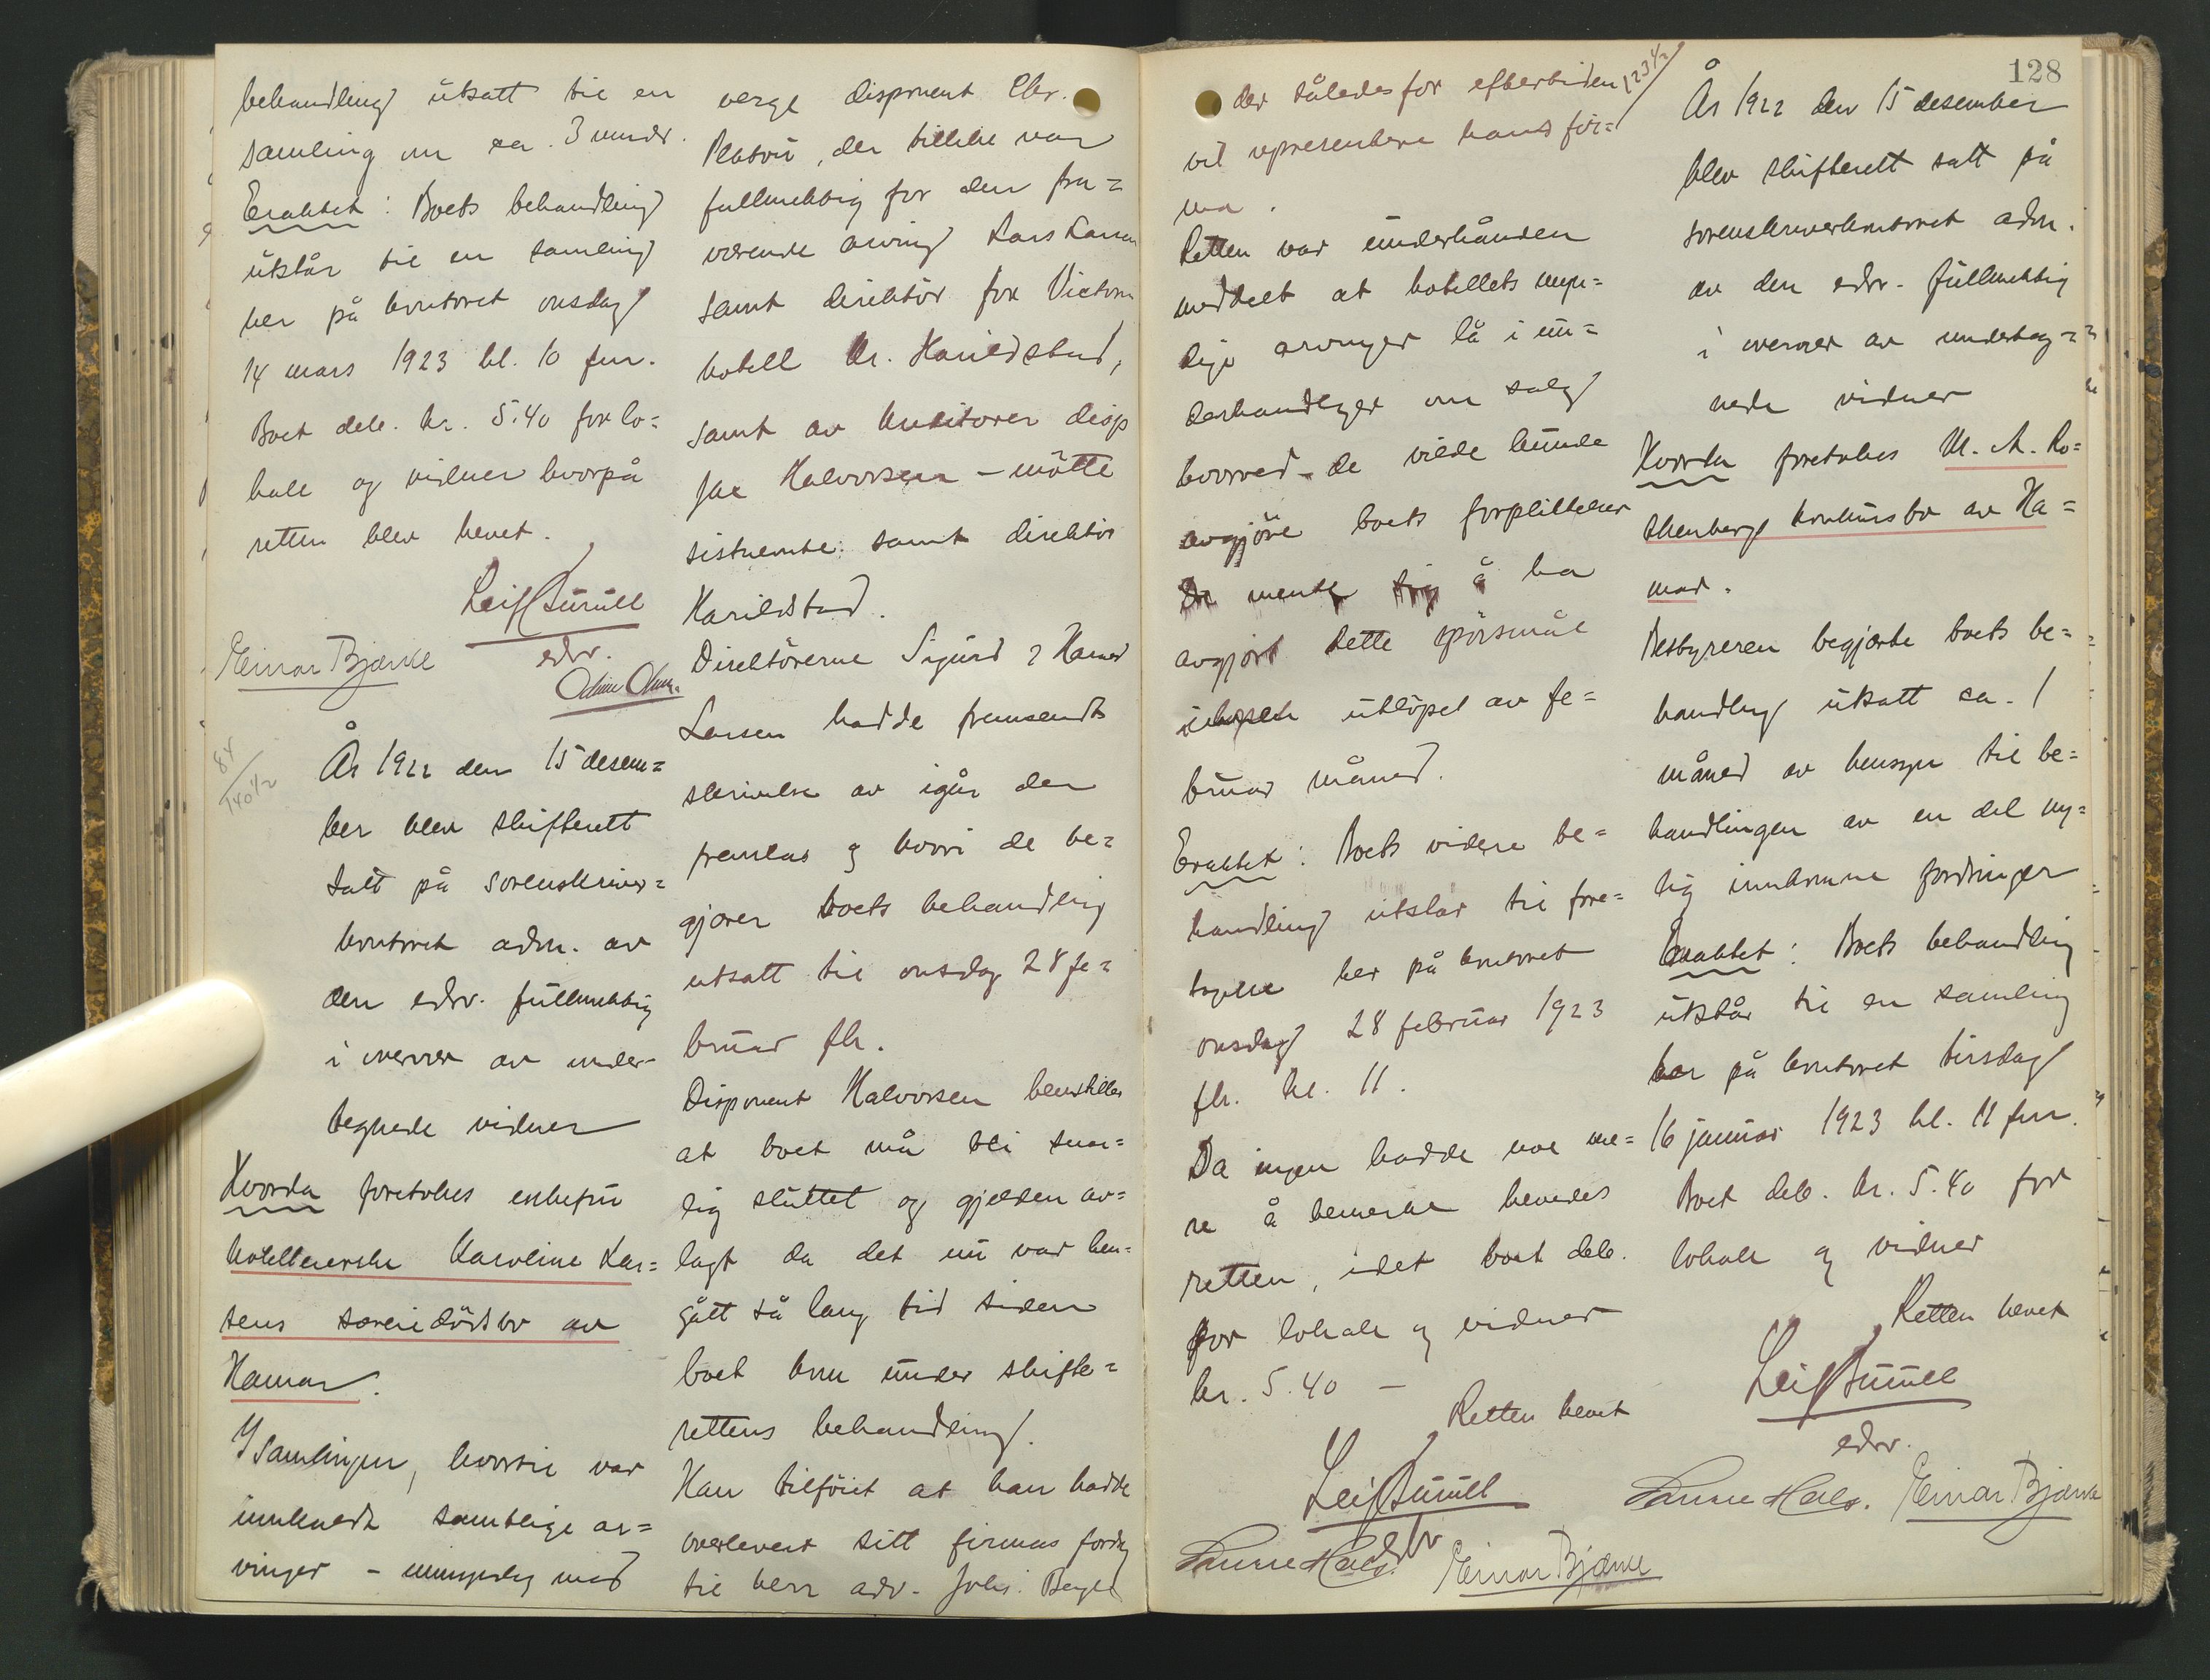 behandling utsatt til en
samling om ca. 3 mndr.
Eraktet: Boets behandling
utstår til en samling
her på kontoret onsdag
14 mars 1923 kl. 10 fm.
Boet deb. kr. 5.40 for lo=
kale og vidner hvorpå
retten blev hevet.
Leif
edsv.
Einar Bjærke
84/140 1/2
År 1922 den 15 desem=
ber blev skifterett
satt på sorenskriver=
kontoret adm. av
den edsv. fullmektig
i overvær av under-
tegnede vidner
Hvorda foretokes enkefru
hotelleierske Karoline Lar=
sens særeiedødsbo av
Hamar.
I samlingen, hvortil var
innkaldt samtlige ar=
vinger - umyndig med
verge disponent Chr.
Platou, der tillike var
fullmektig for den fra=
værende arving Lars Larsen
samt direktør for Victoria
hotell Kr. Harildstad,
samt av kreditorer disp
Jac Halvorsen - møtte
sistnevnte samt direktør
Harildstad.
Direktørerne Sigurd & Hamar
Larsen hadde fremsendt
skrivelse av igår der
fremlas og hvori de be=
gjærer boets behandling
utsatt til onsdag 28 fe=
bruar fk.
Disponent Halvorsen henstiller
at boet må bli snar=
lig sluttet og gjelden av=
lagt da det nu var hen=
gått så lang tid siden
boet kom under skifte=
rettens behandling.
Han tilføiet at han hadde
overlevert sitt firmas fordg
til herr adv. Johs.
123 1/2
der således for eftertiden
vil representere hans fir=
ma.
Retten var underhånden
meddelt at hotellets myn=
dige arvinger lå i un=
derhandlger om salg
hvorved de vilde kunde
avgjøre boets forpliktelser
De mente sig å ha
avgjort dette spørsmål
utløpet av fe=
bruar måned.
Eraktet: Boets videre be=
handling utstår til fore=
tagelse her på kontoret
onsdag 28 februar 1923
fk. kl. 11.
Da ingen hadde noe me=
re å bemerke hevedes
retten, idet boet deb.
for lokale og vidner
kr. 5.40 -
Retten hevet
Leif
edsv
Einar Bjærke
128
År 1922 den 15 desember
blev skifterett satt på
sorenskriverkontoret adm.
av den edsv. fullmektig
i overvær av undertegn=
nede vidner
Hvorda foretokes M. A. Ro=
thenberg konkursbo av Ha=
mar.
Bestyreren begjærte boets be=
handling utsatt ca. 1
måned av hensyn til be=
handlingen av en del ny=
lig innkomne fordringer
Eraktet: Boets behandling
utstår til en samling
her på kontoret tirsdag
16 januar 1923 kl. 11 fm.
Boet deb. kr. 5.40 for
lokale og vidner
Retten hevet
Leif
edsv.
Einar Bjærke